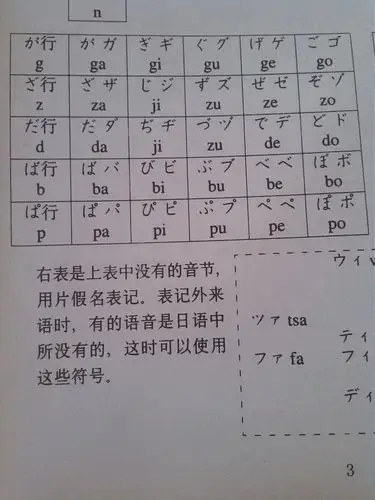 n
が行 が ガ ぎ ギ ぐ グ げ ゲ ご ゴ
g ga gi gu ge go
ざ行 ざ ザ じ ジ ず ズ ぜ ゼ ぞ ゾ
z za ji zu ze zo
だ行 だ ダ ぢ ヂ づ ヅ で デ ど ド
d da ji zu de do
ば行 ば バ び ビ ぶ ブ べ ベ ぼ ボ
b ba bi bu be bo
ぱ行 ぱ パ ぴ ピ ぷ プ ぺ ペ ぽ ポ
p pa pi pu pe po
右表是上表中没有的音节，
用片假名表记。表记外来
语时，有的语音是日语中
所没有的，这时可以使用
这些符号。
ウィ
ツァ tsa
ティ
ファ fa フィ
ディ
3